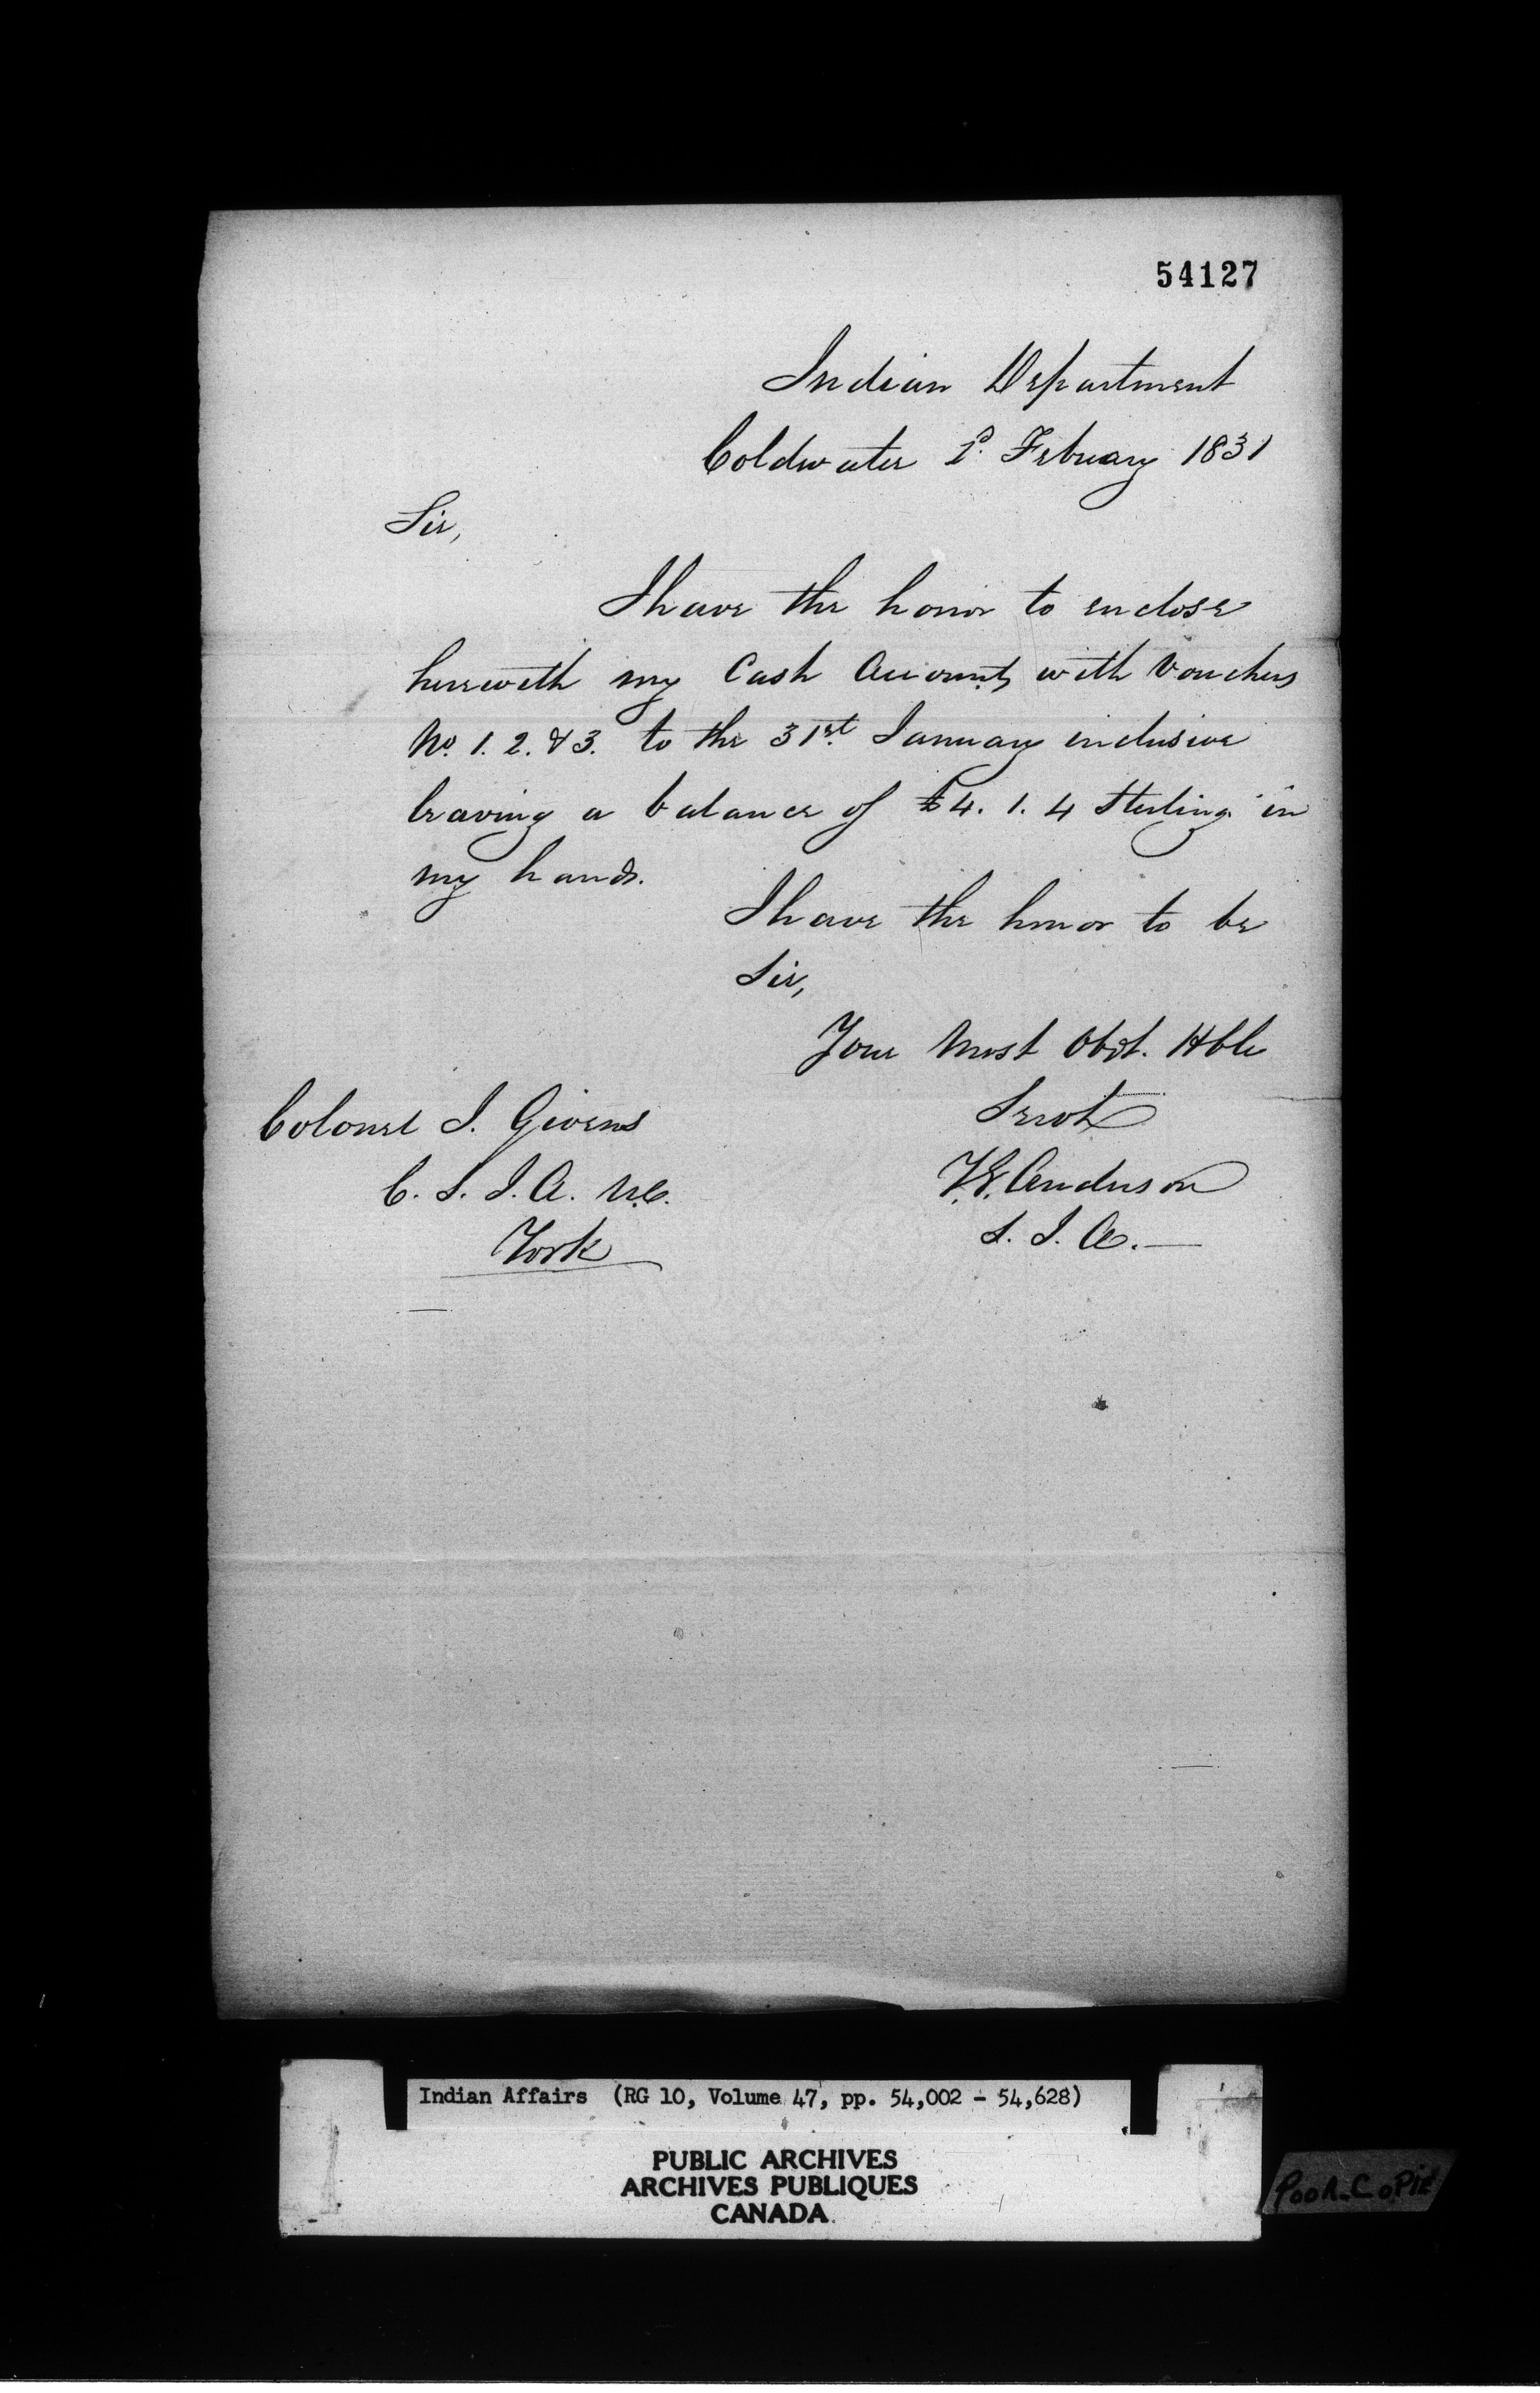 54127
Indian Department
Coldwater 2d. Febuary 1831
Sir,
I have the honor to enclose
herewith my Cash Account, with Vouchers
No. 1. 2. & 3. to the 31st. January inclusive
leaving a balance of £4. 1. 4 Sterling in
my hands.
I have the honor to be
Sir,
Your Most Obdt. Hble
Servt
T.G. Anderson
S. I. A.
Colonel J. Givens
C. S. I. A. U.C.
York
Indian Affairs (RG 10, Volume 47, pp. 54,002 - 54,628)
PUBLIC ARCHIVES
ARCHIVES PUBLIQUES
CANADA
Poor Copie